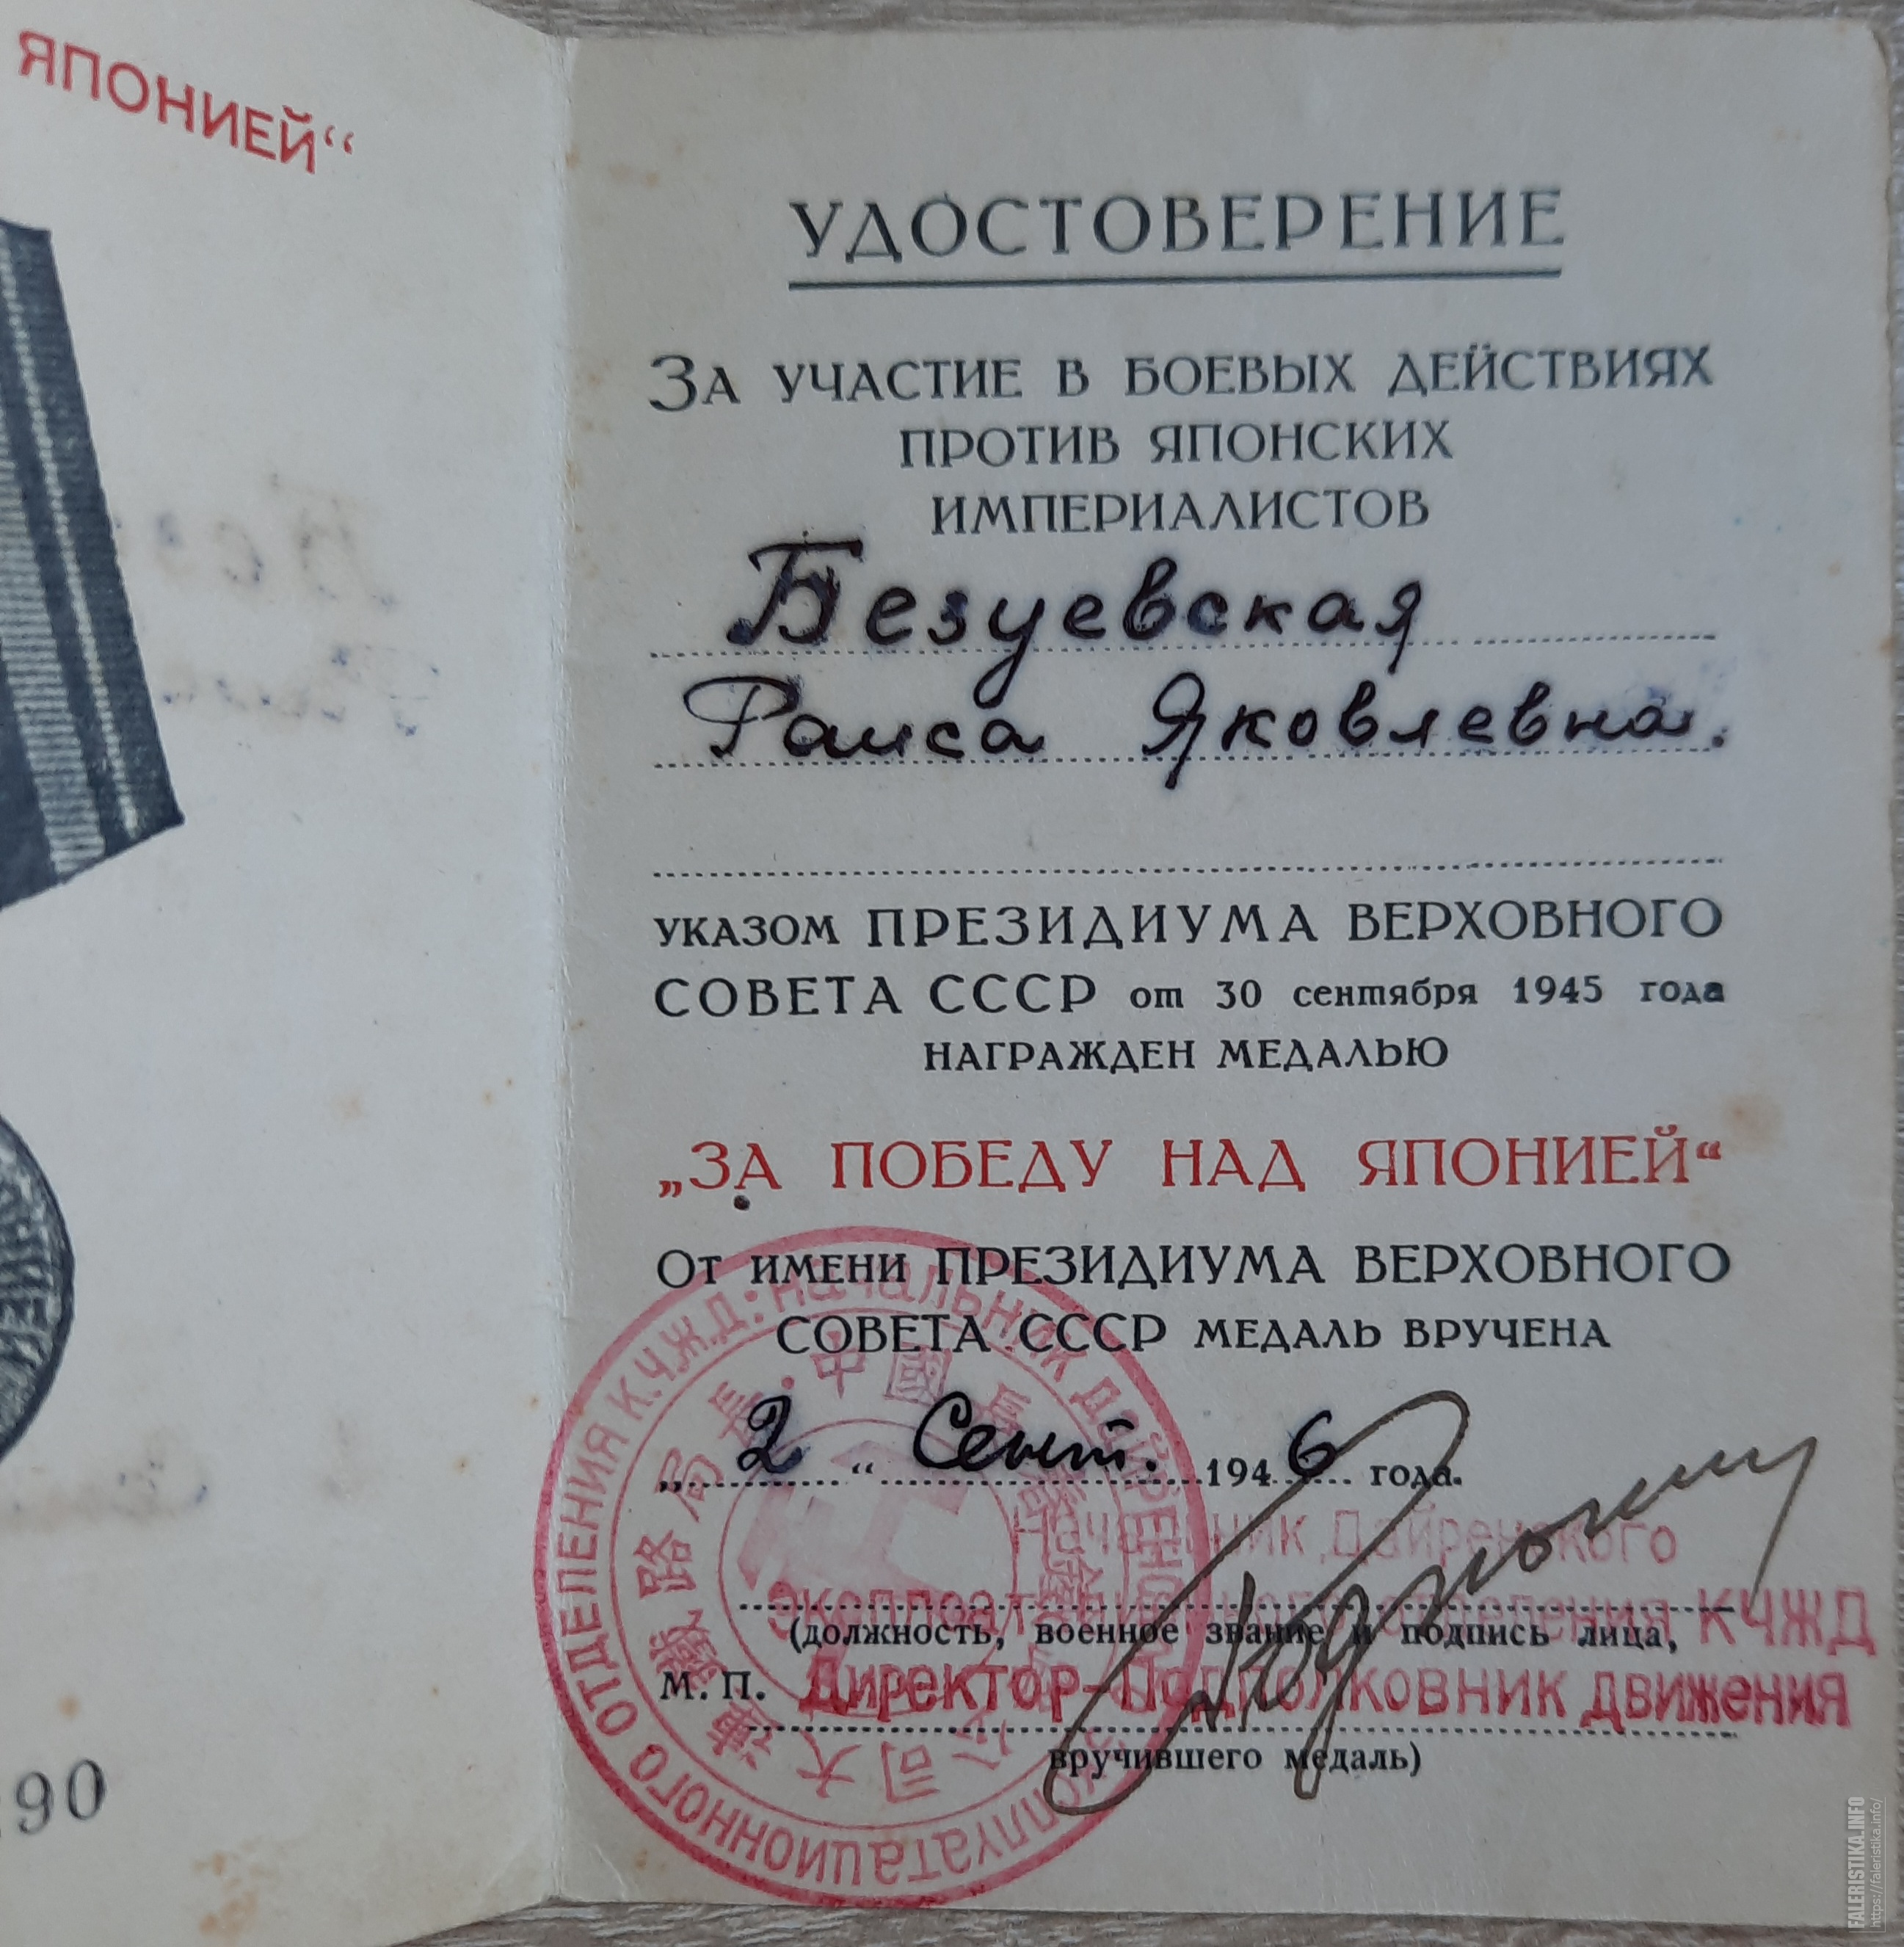 ЯПОНИЕЙ“
90
УДОСТОВЕРЕНИЕ
ЗА УЧАСТИЕ В БОЕВЫХ ДЕЙСТВИЯХ
ПРОТИВ ЯПОНСКИХ
ИМПЕРИАЛИСТОВ
Безуевская
Раиса Яковлевна.
УКАЗОМ ПРЕЗИДИУМА ВЕРХОВНОГО
СОВЕТА СССР от 30 сентября 1945 года
НАГРАЖДЕН МЕДАЛЬЮ
„ЗА ПОБЕДУ НАД ЯПОНИЕЙ“
ОТ ИМЕНИ ПРЕЗИДИУМА ВЕРХОВНОГО
СОВЕТА СССР МЕДАЛЬ ВРУЧЕНА
„2“ Сент. 1946 года.
Начальник Дайренского
Эксплоатационного отделения КЧЖД
(должность, военное звание и подпись лица,
М. П. Директор-Подполковник движения
вручившего медаль)
Начальник Дайренского Эксплуатационного отделения К.Ч.Ж.Д.
中國長春鐵路公司大連鐵路局長
FALERISTIKA.INFO
https://faleristika.info/